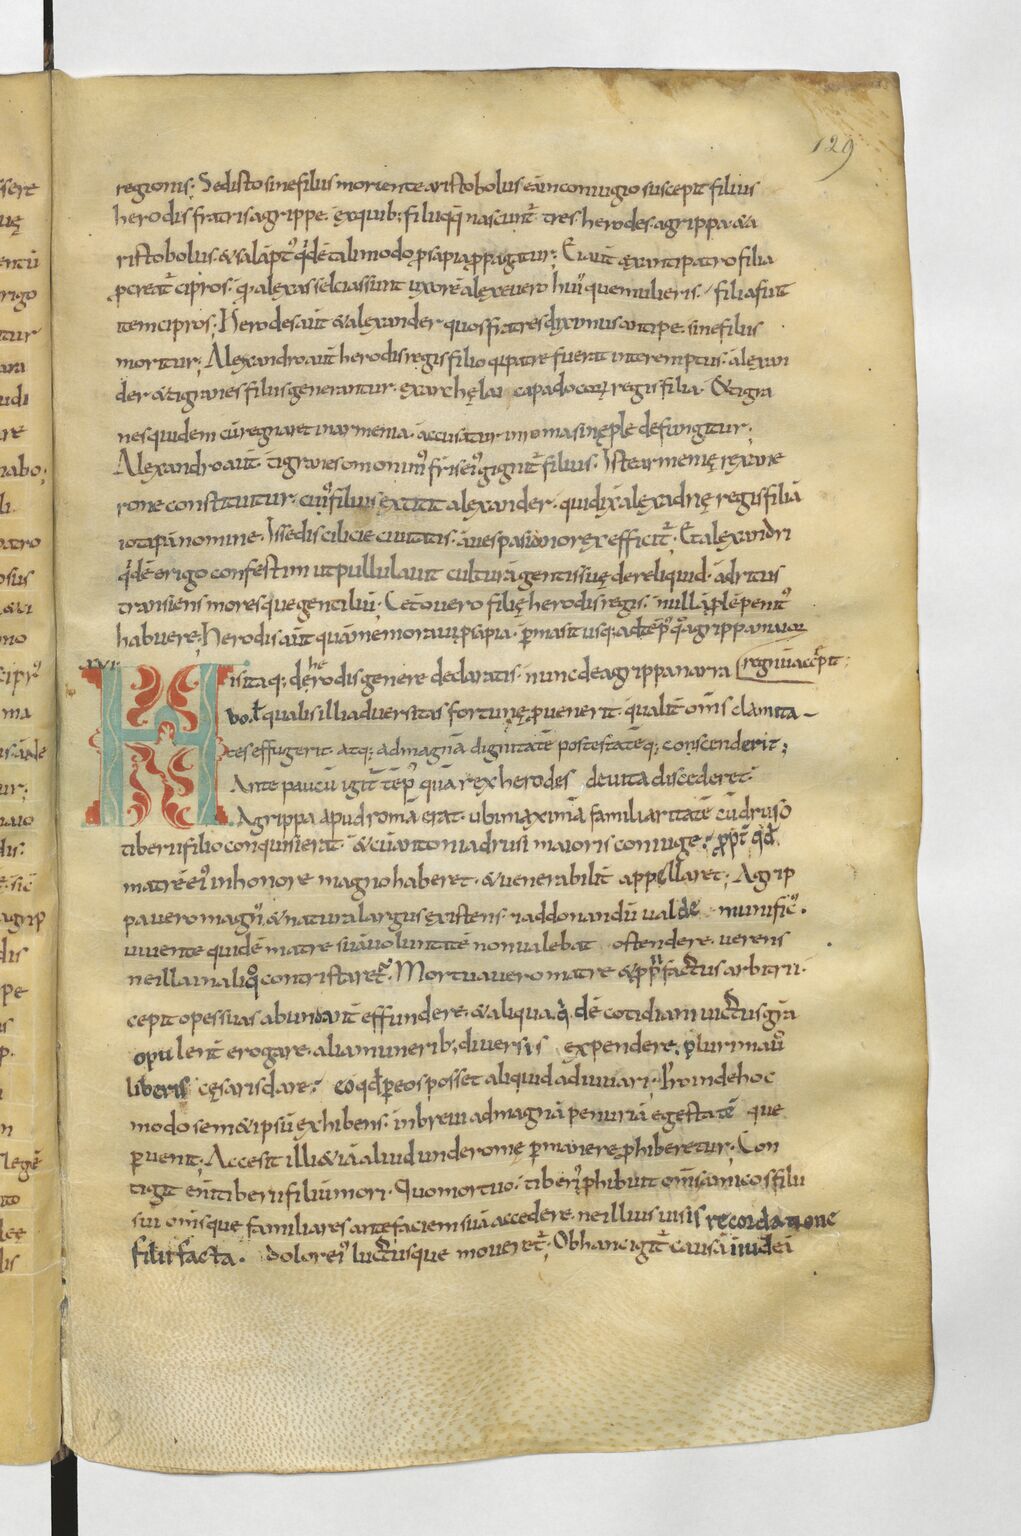 129
regionis. Sed isto sine filiis moriente aristobolus eam coniugio suscepit filius
herodis fratris agrippe. ex quib; filii q̄q; nascunt̃ tres. herodes. agrippa. &a
ristobolus. & salāpt᷒ q̄dē tali modo ꝓsapia ꝓpagitur; Ei aūt ex antipatro filia
ꝓcreat̃ cipros. q̄ alexas selcias sūnt uxorē alexe uero hui᷒ que mulieris filia fuit
item cipros. Herodes aūt & alexander quos fratres diximus antipe. sine filiis
moritur; Alexandro aūt herodis regis filio qui patre fuerat interemptus. alexan
der & tigranes filius generantur. ex archęlai capadocoꝝ regis filia. & tigra
nes quidem cū regnaret in armenia. accusatur in roma sinę ple defungitur;
Alexandro aūt tigranes omonim᷒ fr̄is ei᷒ gignit̃ filius. Iste armenię rex a ne
rone constituitur. cui᷒ filius extitit alexander. qui dix̄ alexādrię regis filiā
iotapān nomine. Isse dis cilicie ciuitatis. a uespasiano rex efficit̃. Et alexandri
q̄dē origo confestim ut pullulauit culturā gentis suę dereliquid. ad ritus
transiens moresque gentiliū. Cetō uero filię herodis regis. nullā plē penit᷒
habuere; Herodis aūt quā memoraui ꝓsapia. ꝑmāsit usq; ad tēp᷒ q᷒ agrippa maior
XVI. regnū accēpit;
His itaq; de herodis genere declaratis. nunc de agrippa narra
bo. uł qualis illi aduersitas fortunę ꝓuenerit. qualit̃ om̄s clamita
tes effugerit. atq; ad magnā dignitatē postestatēq; conscenderit;
Ante paucū igit̃ tēp᷒ quā rex herodes de uita discederet.
Agrippa apud romā erat. ubi maximā familiaritatē cū druso
tiberii filio conquisierat. & cū antonia drusi maioris coniuge. ꝓpt̃ qđ
matrē ei᷒ in honore magno haberet. & uenerabilit̃ appellaret; Agrip
pa uero magn᷒. & natura largus existens. & ad donandū ualde munific᷒.
uiuente quidē matre suā uoluntatē non ualebat ostendere. uerens
ne illam aliq᷒ contristaret̃. Mortua uero matre & pp̄ri factus arbitrii.
cepit opes suas abundant̃ effundere. & aliqua q̄dē cotidiani uictus grā
opulent̃ erogare. alia muneriƀ; diuersis expendere. plurima u᷒
liberis cęsaris dare. eo qđ per eos posset aliquid adiuuari. Proinde hoc
modo sem& ipsū exhibens. in breui ad magnā penuriā egestatē que
ꝑuenit; Accesit illi & iā aliud unde romę ꝑmanere ꝓhiberetur; Con
tigit eni tiberii filiū mori. Quo mortuo. tiberi᷒ ꝓhibuit om̄s amicos filii
sui om̄sque familiares ante faciem suā accedere. ne illius uisis recordatione
filii facta. dolore ei᷒ luctusque moueret̃; Ob hanc igit̃ causā iudeā